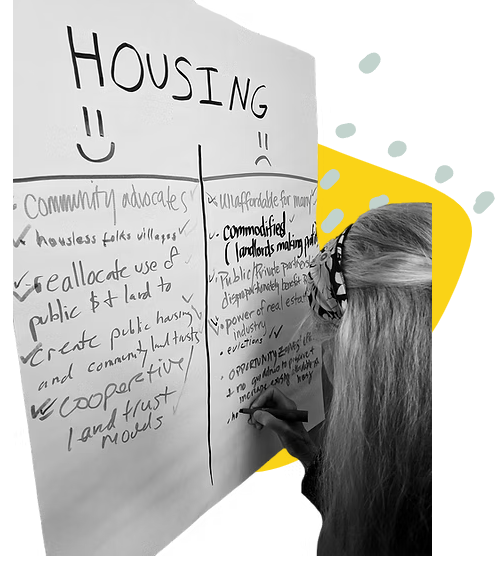 HOUSING
community advocates
houseless folks villages
reallocate use of
public $ + land to
create public housing
and community land trusts
cooperative/
land trust
models
unaffordable for many
commodified
(landlords making profit
Public/Private partners
disproportionately benefit
power of real estate
industry
evictions
OPPORTUNITY ZONES
+ no guidance to protect
increase existing